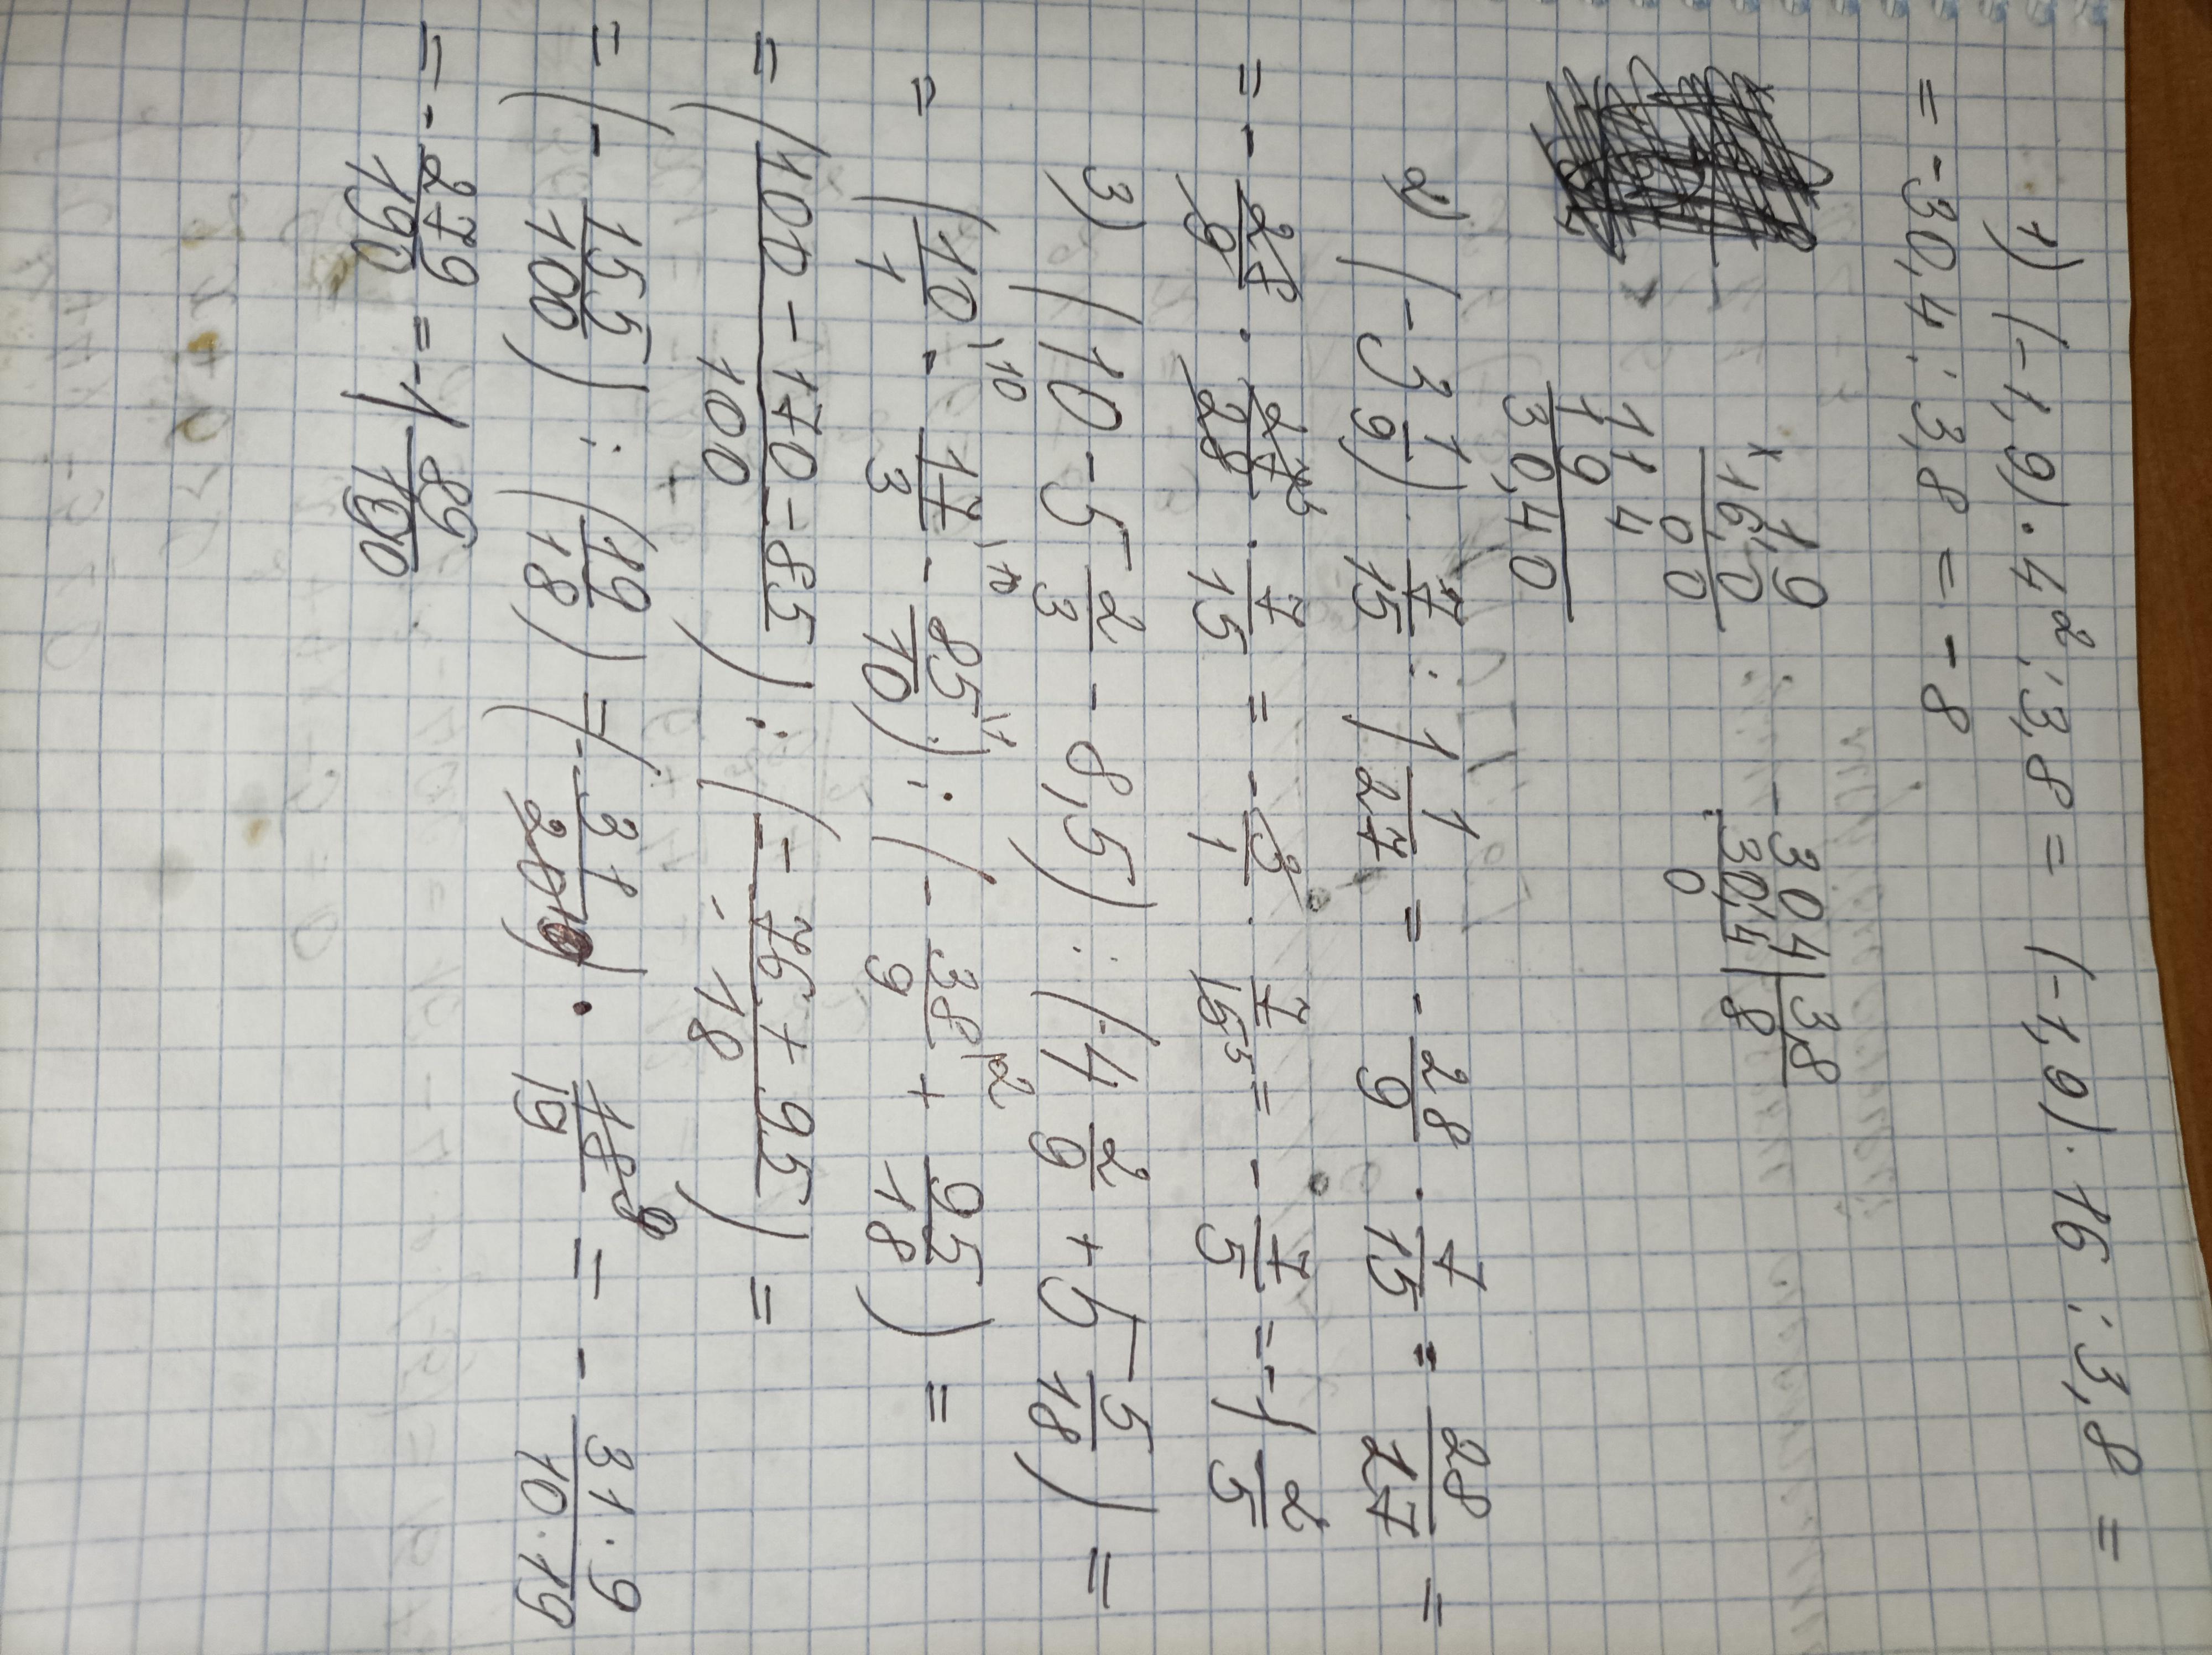 1) (-1,9) · 4² : 3,8 = (-1,9) · 16 : 3,8 =
= -30,4 : 3,8 = -8
× 1,9
16,0
00
114
19
30,40
- 304 | 38
304 | 8
0
2) (-3 1/9) · 7/15 : 1 1/27 = - 28/9 · 7/15 : 28/27 =
= - 28/9 · 27/28 · 7/15 = - 3/1 · 7/15 5 = - 7/5 = -1 2/5
3) (10 - 5 2/3 - 8,5) : (-4 2/9 + 5 5/18) =
= (10/1 \10 - 17/3 \10 - 85/10 \1) : (- 38/9 \2 + 95/18) =
= (100 - 170 - 85/100) : (- 76 + 95/18) =
= (- 155/100) : (19/18) = (- 31/20) · 18 9/19 = - 31 · 9/10 · 19
= - 279/190 = -1 89/190